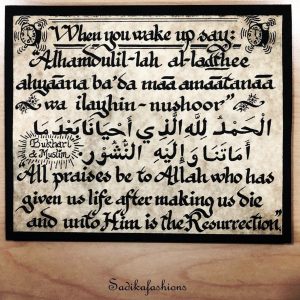 When you wake up say:
"Alhamdulil-lah al-ladthee
ahyaana ba'da maa amaatanaa
wa ilayhin-nushoor"
الْحَمْدُ لِلَّهِ الَّذِي أَحْيَانَا بَعْدَمَا
أَمَاتَنَا وَإِلَيْهِ النُّشُوْرُ
Bukhari
& Muslim
All praises be to Allah who has
given us life after making us die
and unto Him is the Resurrection."
Sadikafashions